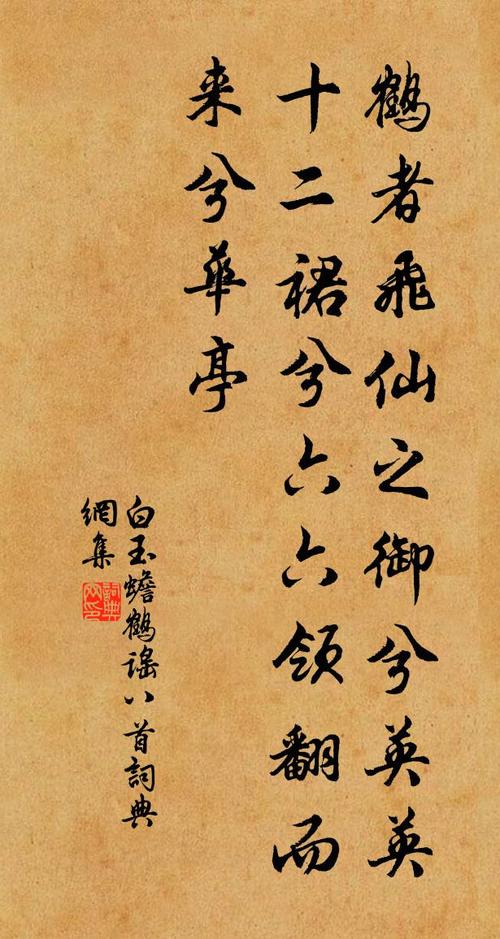 鶴者飛仙之御兮英英
十二裙兮六六領翻而
来兮華亭
白玉蟾鶴謡八首詞典
網集
詞典
网印